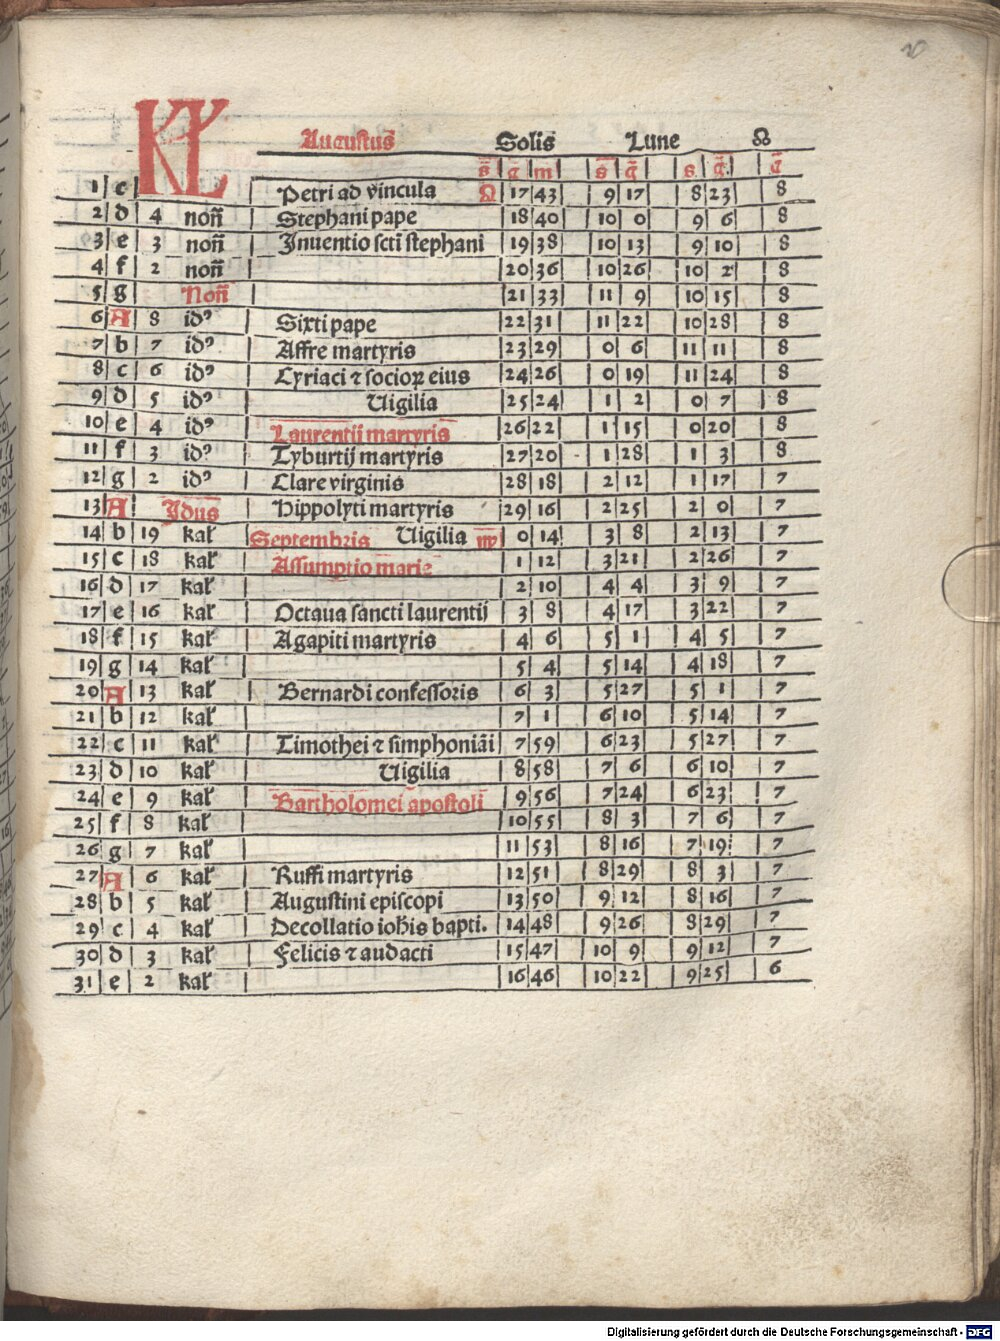 KL Augustus̄ Solis Lune ☊
s̄ ḡ m s̄ ḡ s ḡ ḡ
1 c Petri ad vincula ♌ 17 43 9 17 8 23 8
2 d 4 non̄ Stephani pape 18 40 10 0 9 6 8
3 e 3 non̄ Inuentio scti stephani 19 38 10 13 9 10 8
4 f 2 non̄ 20 36 10 26 10 2 8
5 g Non̄ 21 33 11 9 10 15 8
6 A 8 idꝰ Sixti pape 22 31 11 22 10 28 8
7 b 7 idꝰ Affre martyris 23 29 0 6 11 11 8
8 c 6 idꝰ Cyriaci ⁊ socioꝝ eius 24 26 0 19 11 24 8
9 d 5 idꝰ Uigilia 25 24 1 2 0 7 8
10 e 4 idꝰ Laurentii martyris 26 22 1 15 0 20 8
11 f 3 idꝰ Tyburtij martyris 27 20 1 28 1 3 8
12 g 2 idꝰ Clare virginis 28 18 2 12 1 17 7
13 A Idus Hippolyti martyris 29 16 2 25 2 0 7
14 b 19 kal̄ Septembris Uigilia ♍ 0 14 3 8 2 13 7
15 c 18 kal̄ Assumptio marie 1 12 3 21 2 26 7
16 d 17 kal̄ 2 10 4 4 3 9 7
17 e 16 kal̄ Octaua sancti laurentij 3 8 4 17 3 22 7
18 f 15 kal̄ Agapiti martyris 4 6 5 1 4 5 7
19 g 14 kal̄ 5 4 5 14 4 18 7
20 A 13 kal̄ Bernardi confessoris 6 3 5 27 5 1 7
21 b 12 kal̄ 7 1 6 10 5 14 7
22 c 11 kal̄ Timothei ⁊ simphoniāi 7 59 6 23 5 27 7
23 d 10 kal̄ Uigilia 8 58 7 6 6 10 7
24 e 9 kal̄ Bartholomei apostoli 9 56 7 24 6 23 7
25 f 8 kal̄ 10 55 8 3 7 6 7
26 g 7 kal̄ 11 53 8 16 7 19 7
27 A 6 kal̄ Ruffi martyris 12 51 8 29 8 3 7
28 b 5 kal̄ Augustini episcopi 13 50 9 12 8 16 7
29 c 4 kal̄ Decollatio ioh̄is bapti. 14 48 9 26 8 29 7
30 d 3 kal̄ Felicis ⁊ audacti 15 47 10 9 9 12 7
31 e 2 kal̄ 16 46 10 22 9 25 6
Digitalisierung gefördert durch die Deutsche Forschungsgemeinschaft - DFG